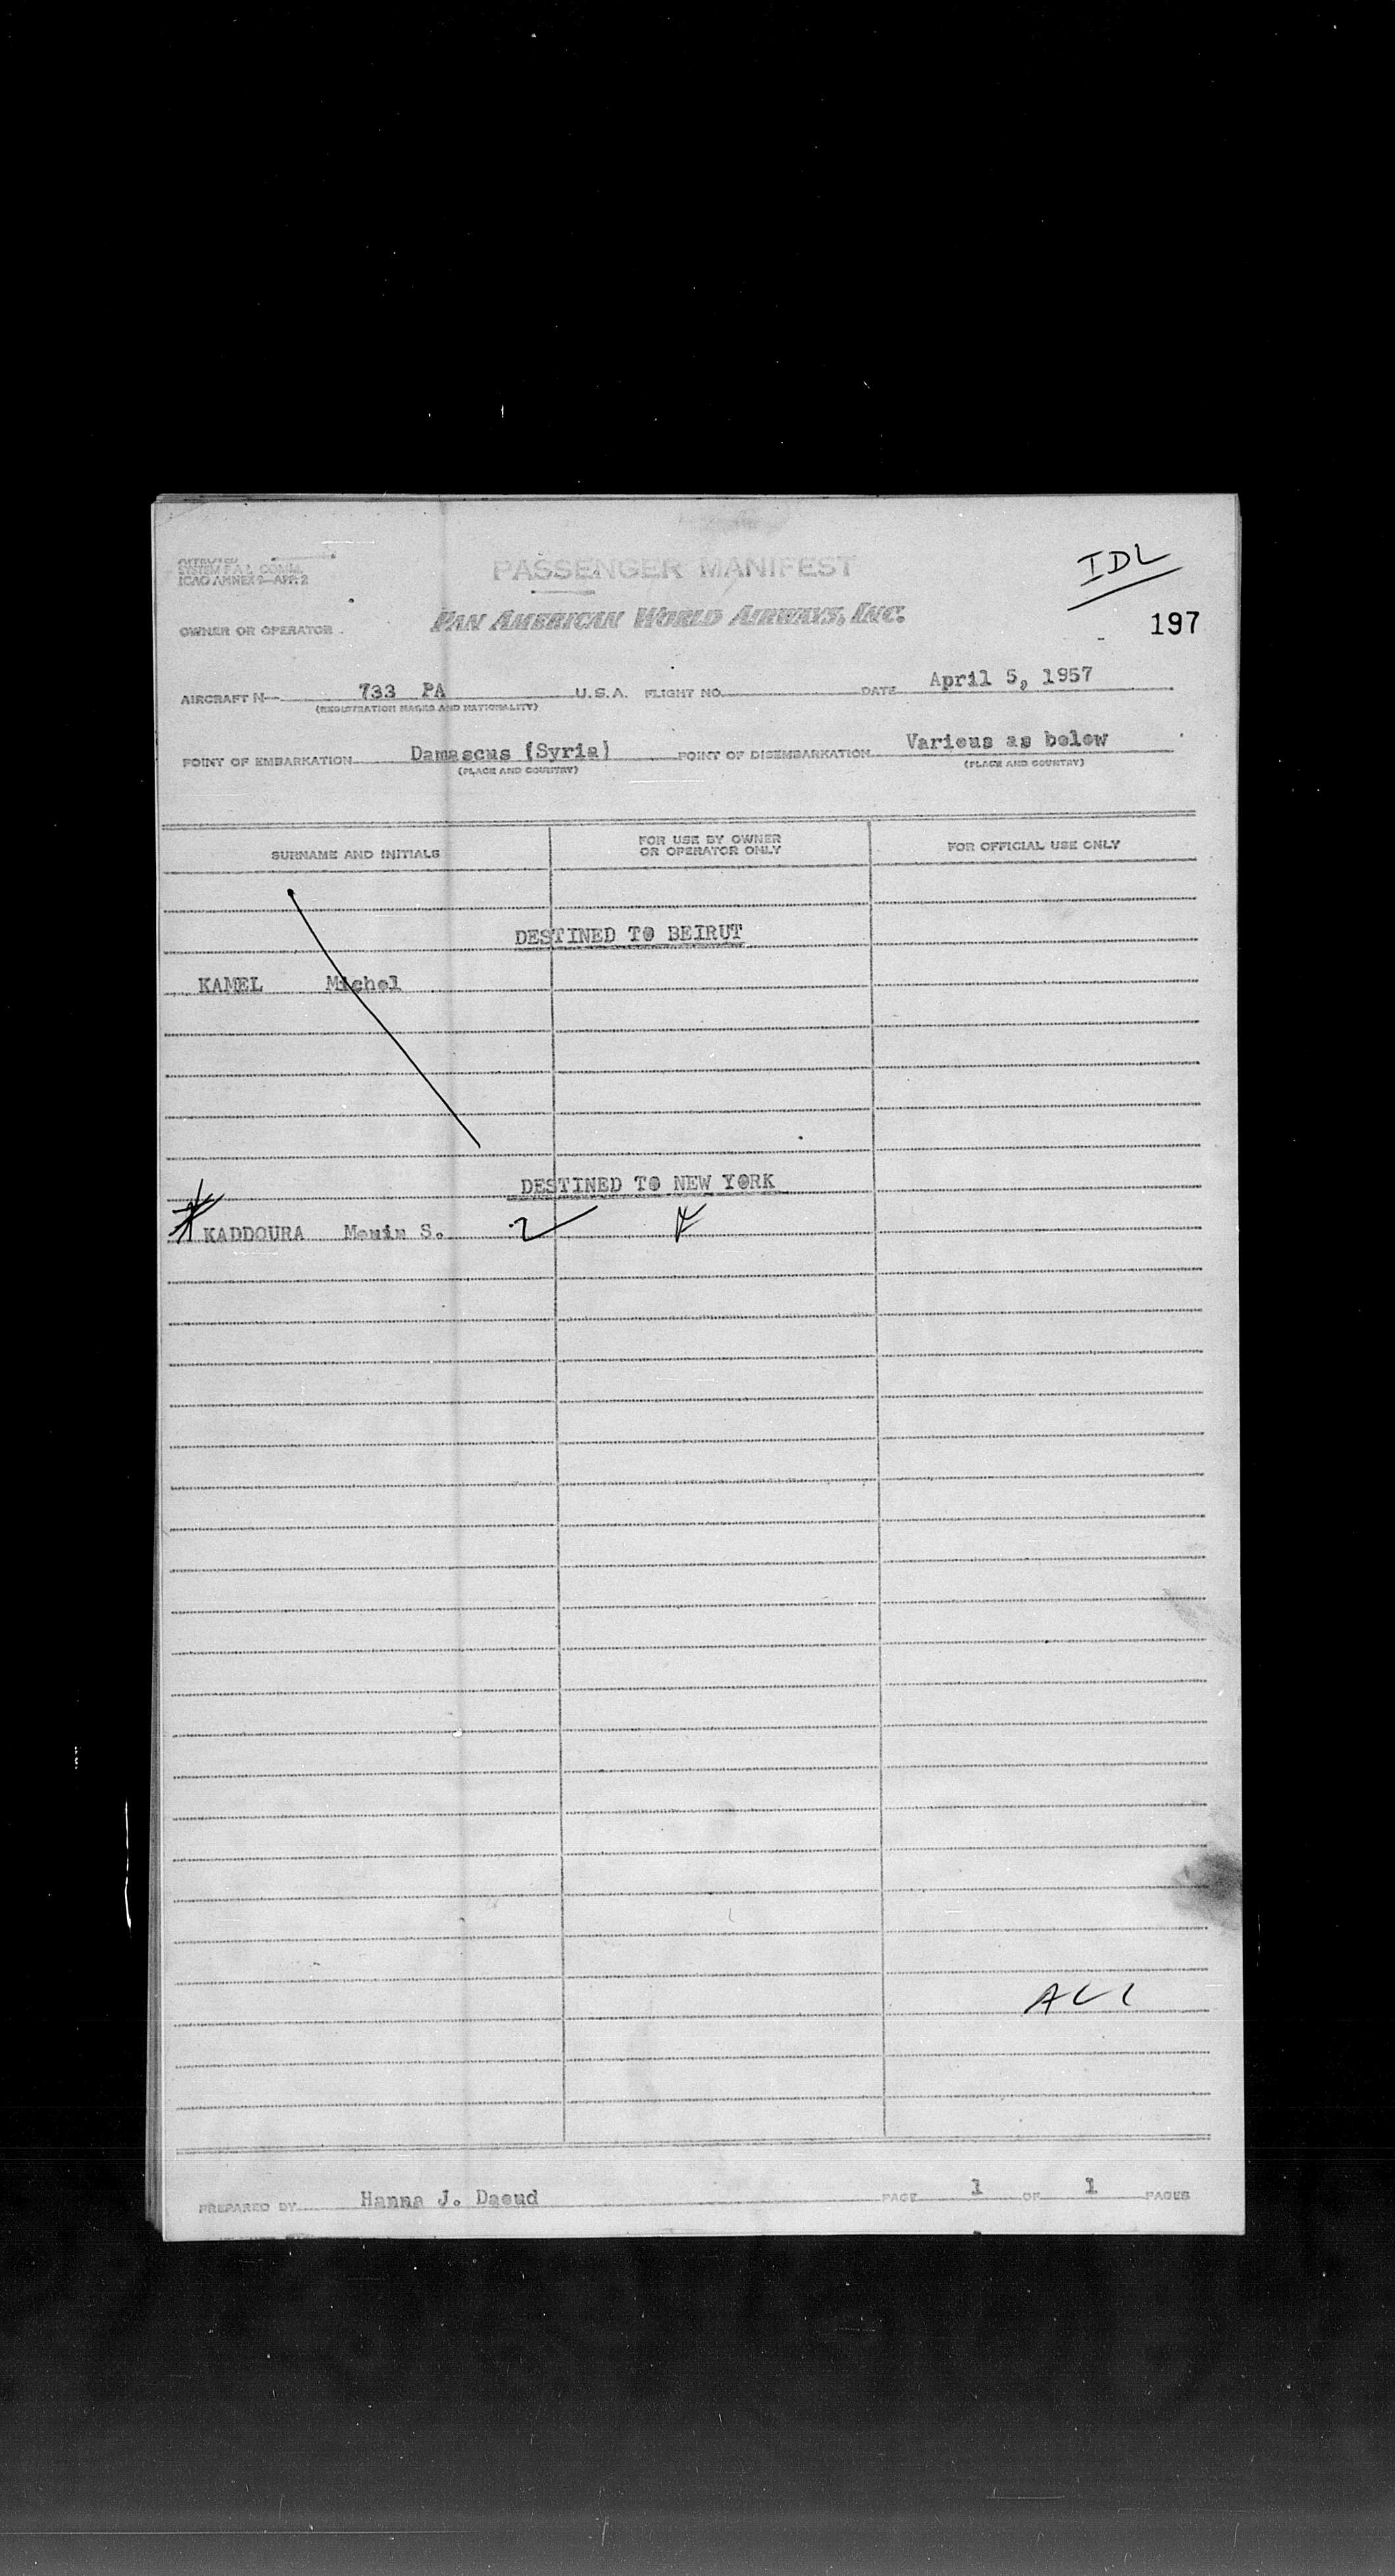 SYSTEM F.A.L. COMM.
ICAO ANNEX 9—APP. 2
PASSENGER MANIFEST
IDL
OWNER OR OPERATOR
PAN AMERICAN WORLD AIRWAYS, INC.
197
AIRCRAFT N— 733 PA U.S.A. FLIGHT NO. DATE April 5, 1957
(REGISTRATION MARKS AND NATIONALITY)
POINT OF EMBARKATION Damascus (Syria) POINT OF DISEMBARKATION Various as below
(PLACE AND COUNTRY) (PLACE AND COUNTRY)
SURNAME AND INITIALS FOR USE BY OWNER OR OPERATOR ONLY FOR OFFICIAL USE ONLY
DESTINED TO BEIRUT
KAMEL Michel
DESTINED TO NEW YORK
KADDOURA S.
Hanna J. Daoud
PREPARED BY PAGE 1 OF 1 PAGES